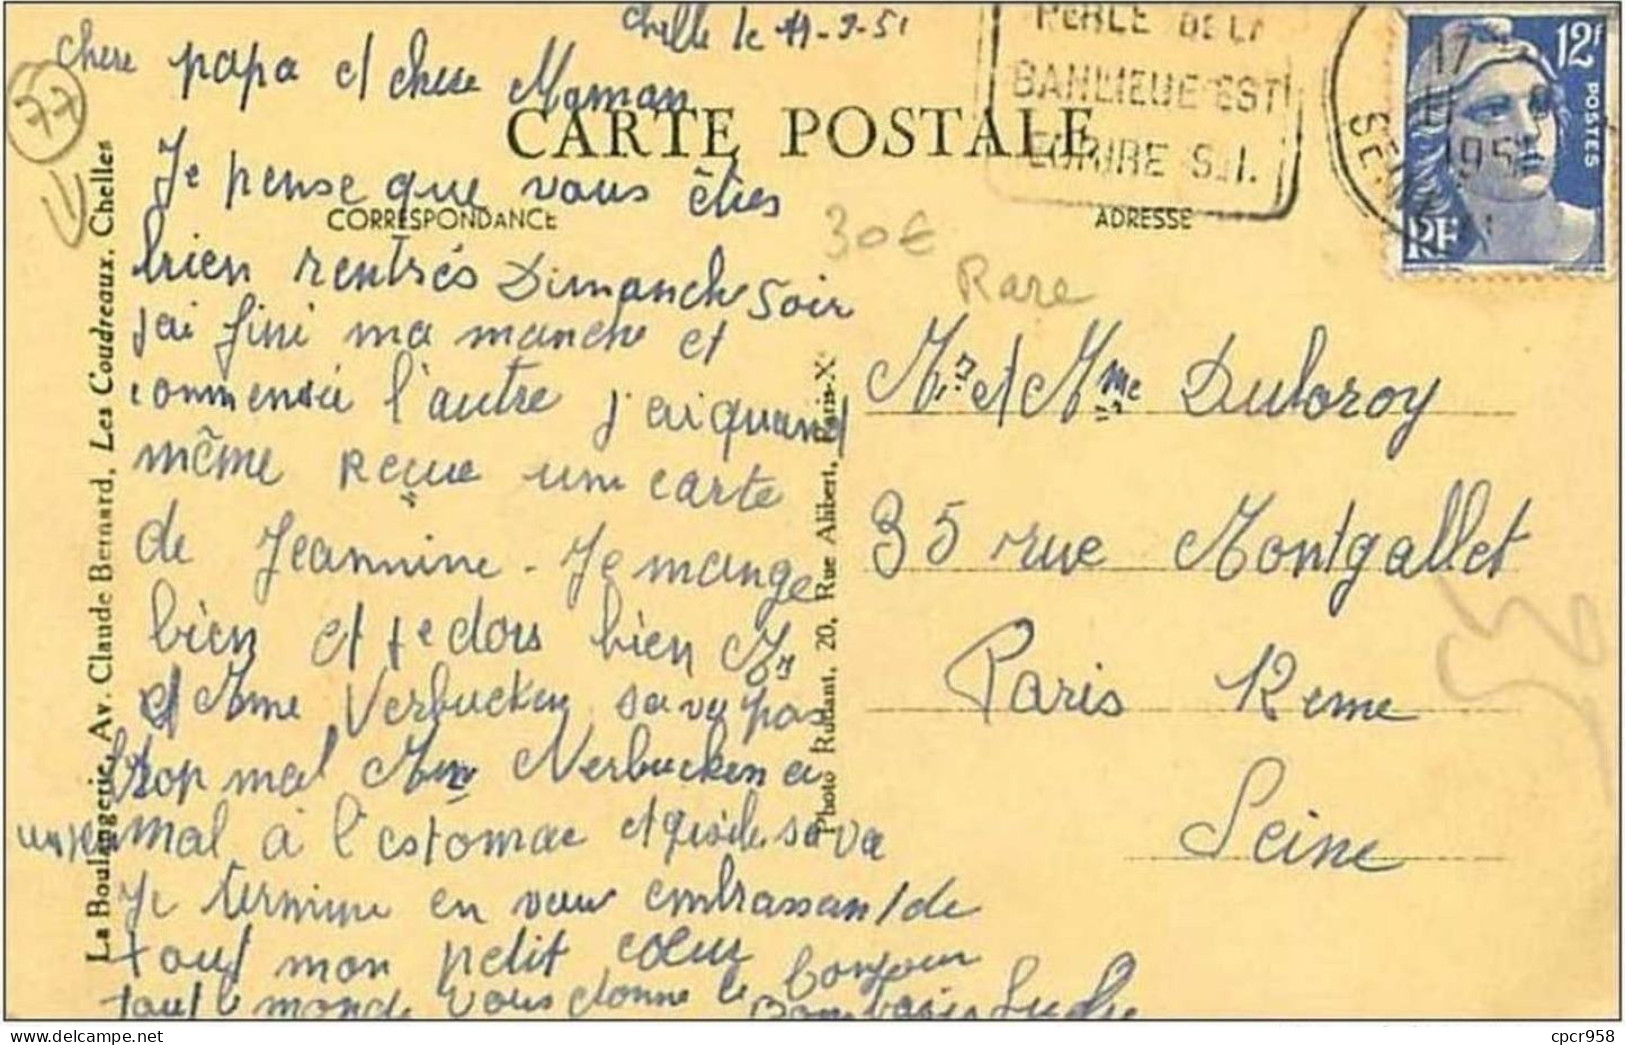 Chelle le 11-9-51
chere papa et chere Maman
77
CARTE POSTALE
Je pense que vous êties
CORRESPONDANCE
bien rentrés Dimanche soir
j'ai fini ma manche et
commensée l'autre j'ai quand
même Reçue une carte
de Jeannine - Je mange
bien et je dors bien Mr
et Mme Verbucken sa va pas
trop mal Mme Verbucken a
un peu mal à l'estomac et puis le sa va
Je termine en vous embrassant de
tout mon petit cœur
tout le monde vous donne le bonjour
Bon baiser
La Boulangerie, Av. Claude Bernard, Les Coudreaux, Chelles
Photo Rudant, 20, Rue Alibert, Paris-X
PERLE DE LA
BANLIEUE EST
S.I.
17
1951
SEINE
12F
POSTES
RF
ADRESSE
30€
Rare
Mr et Mme Duboroy
35 rue Montgallet
Paris 12eme
Seine
cpcr958